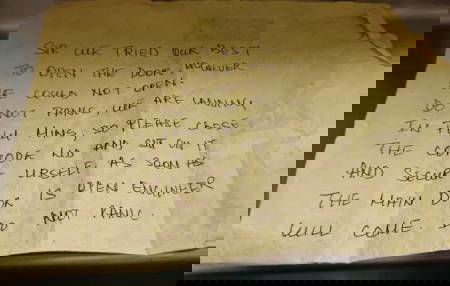 SIR WE TRIED OUR BEST
TO OPEN THE DOOR, HOWEVER
WE COULD NOT OPEN.
DO NOT PANIC, WE ARE LANDING
IN FEW MINS, SO, PLEASE CLOSE
THE COMODE LID AND SIT ON IT
AND SECURE URSELF. AS SOON AS
THE MAIN DOOR IS OPEN, ENGINEER
WILL COME. DO NOT PANIC